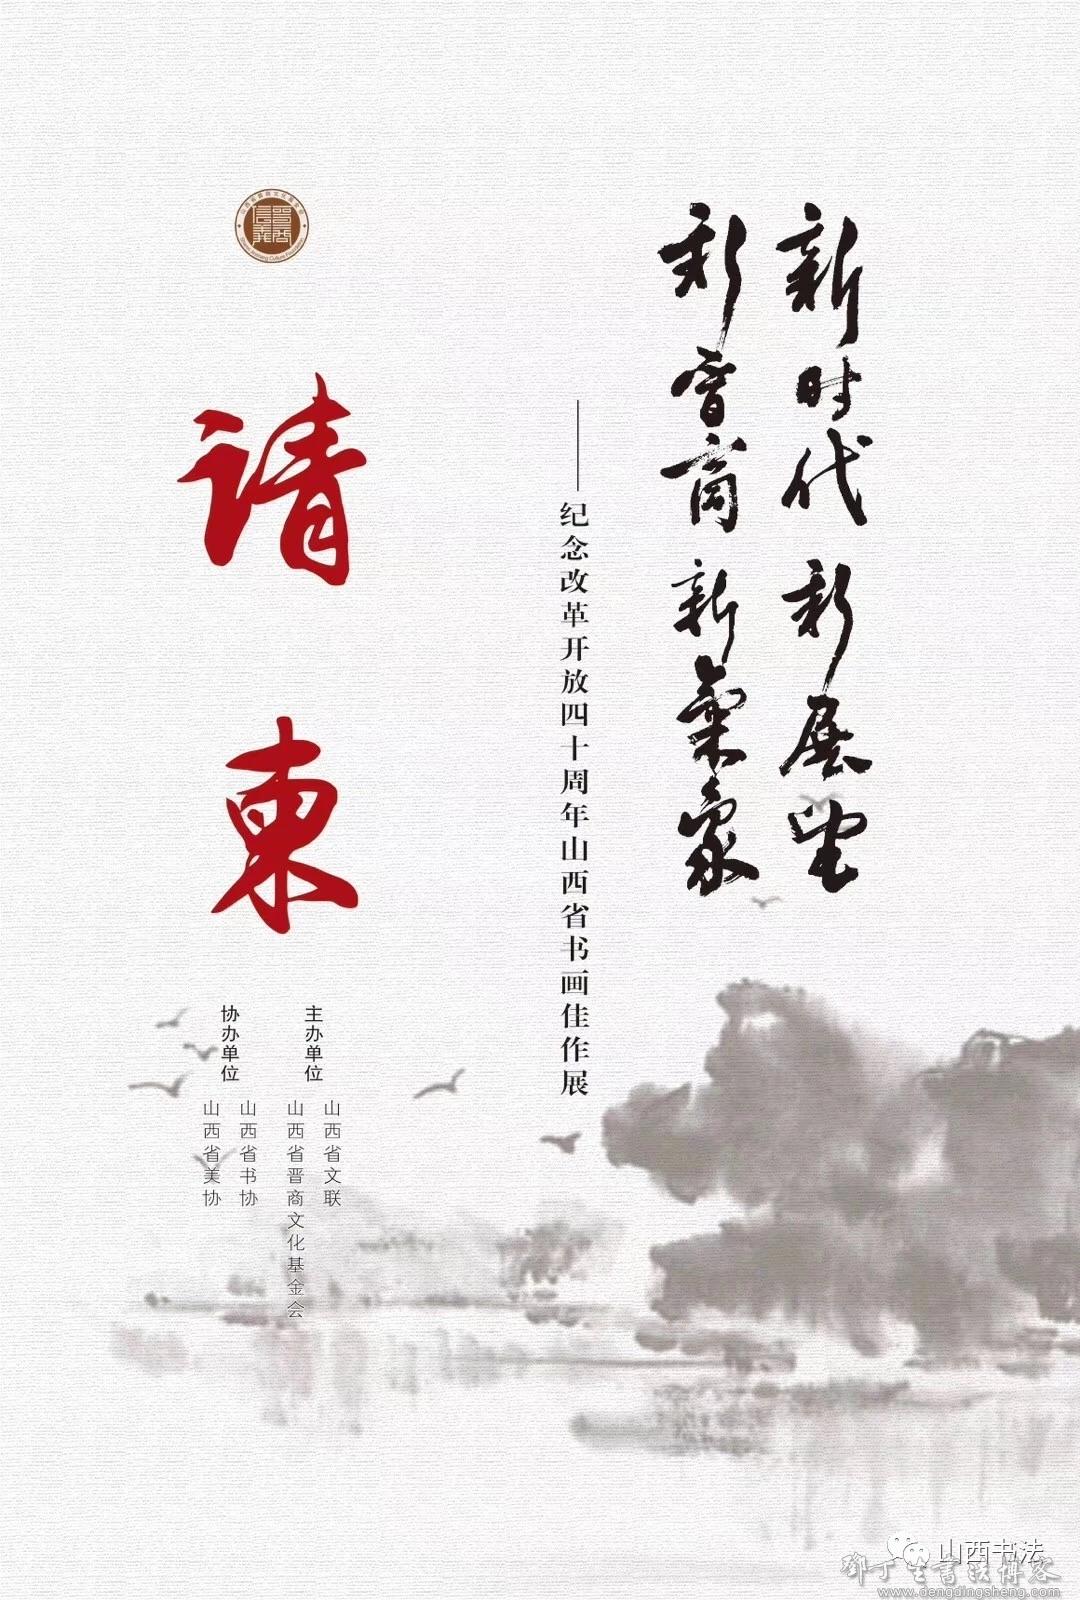 新时代 新展望
新晋商 新氣象
——纪念改革开放四十周年山西省书画佳作展
请柬
主办单位
山西省文联
山西省晋商文化基金会
协办单位
山西省书协
山西省美协
山西书法
邓丁生書法博客
www.dengdingsheng.com